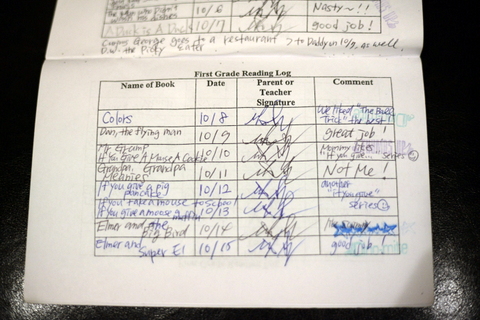 10/6 Nasty~!!
A Duck is A Duck 10/7 good job!
George goes to a restaurant > to Daddy on 10/9, as well.
D.W. the Picky Eater
First Grade Reading Log
Name of Book Date Parent or Teacher Signature Comment
Colors 10/8 We liked "The Trick" the best!
Dan, the flying man 10/9 great job!
Mr. Grump
If You Give A Mouse A Cookie 10/10 Mommy likes "If you give... series
Grandpa, Grandpa
Meanies 10/11 Not Me!
If you give a pig pancake 10/12 another "If you give" series
If you take a mouse to school
If you give a moose a muffin 10/13
Elmer and the Big Bird 10/14
Elmer and Super El 10/15 good job